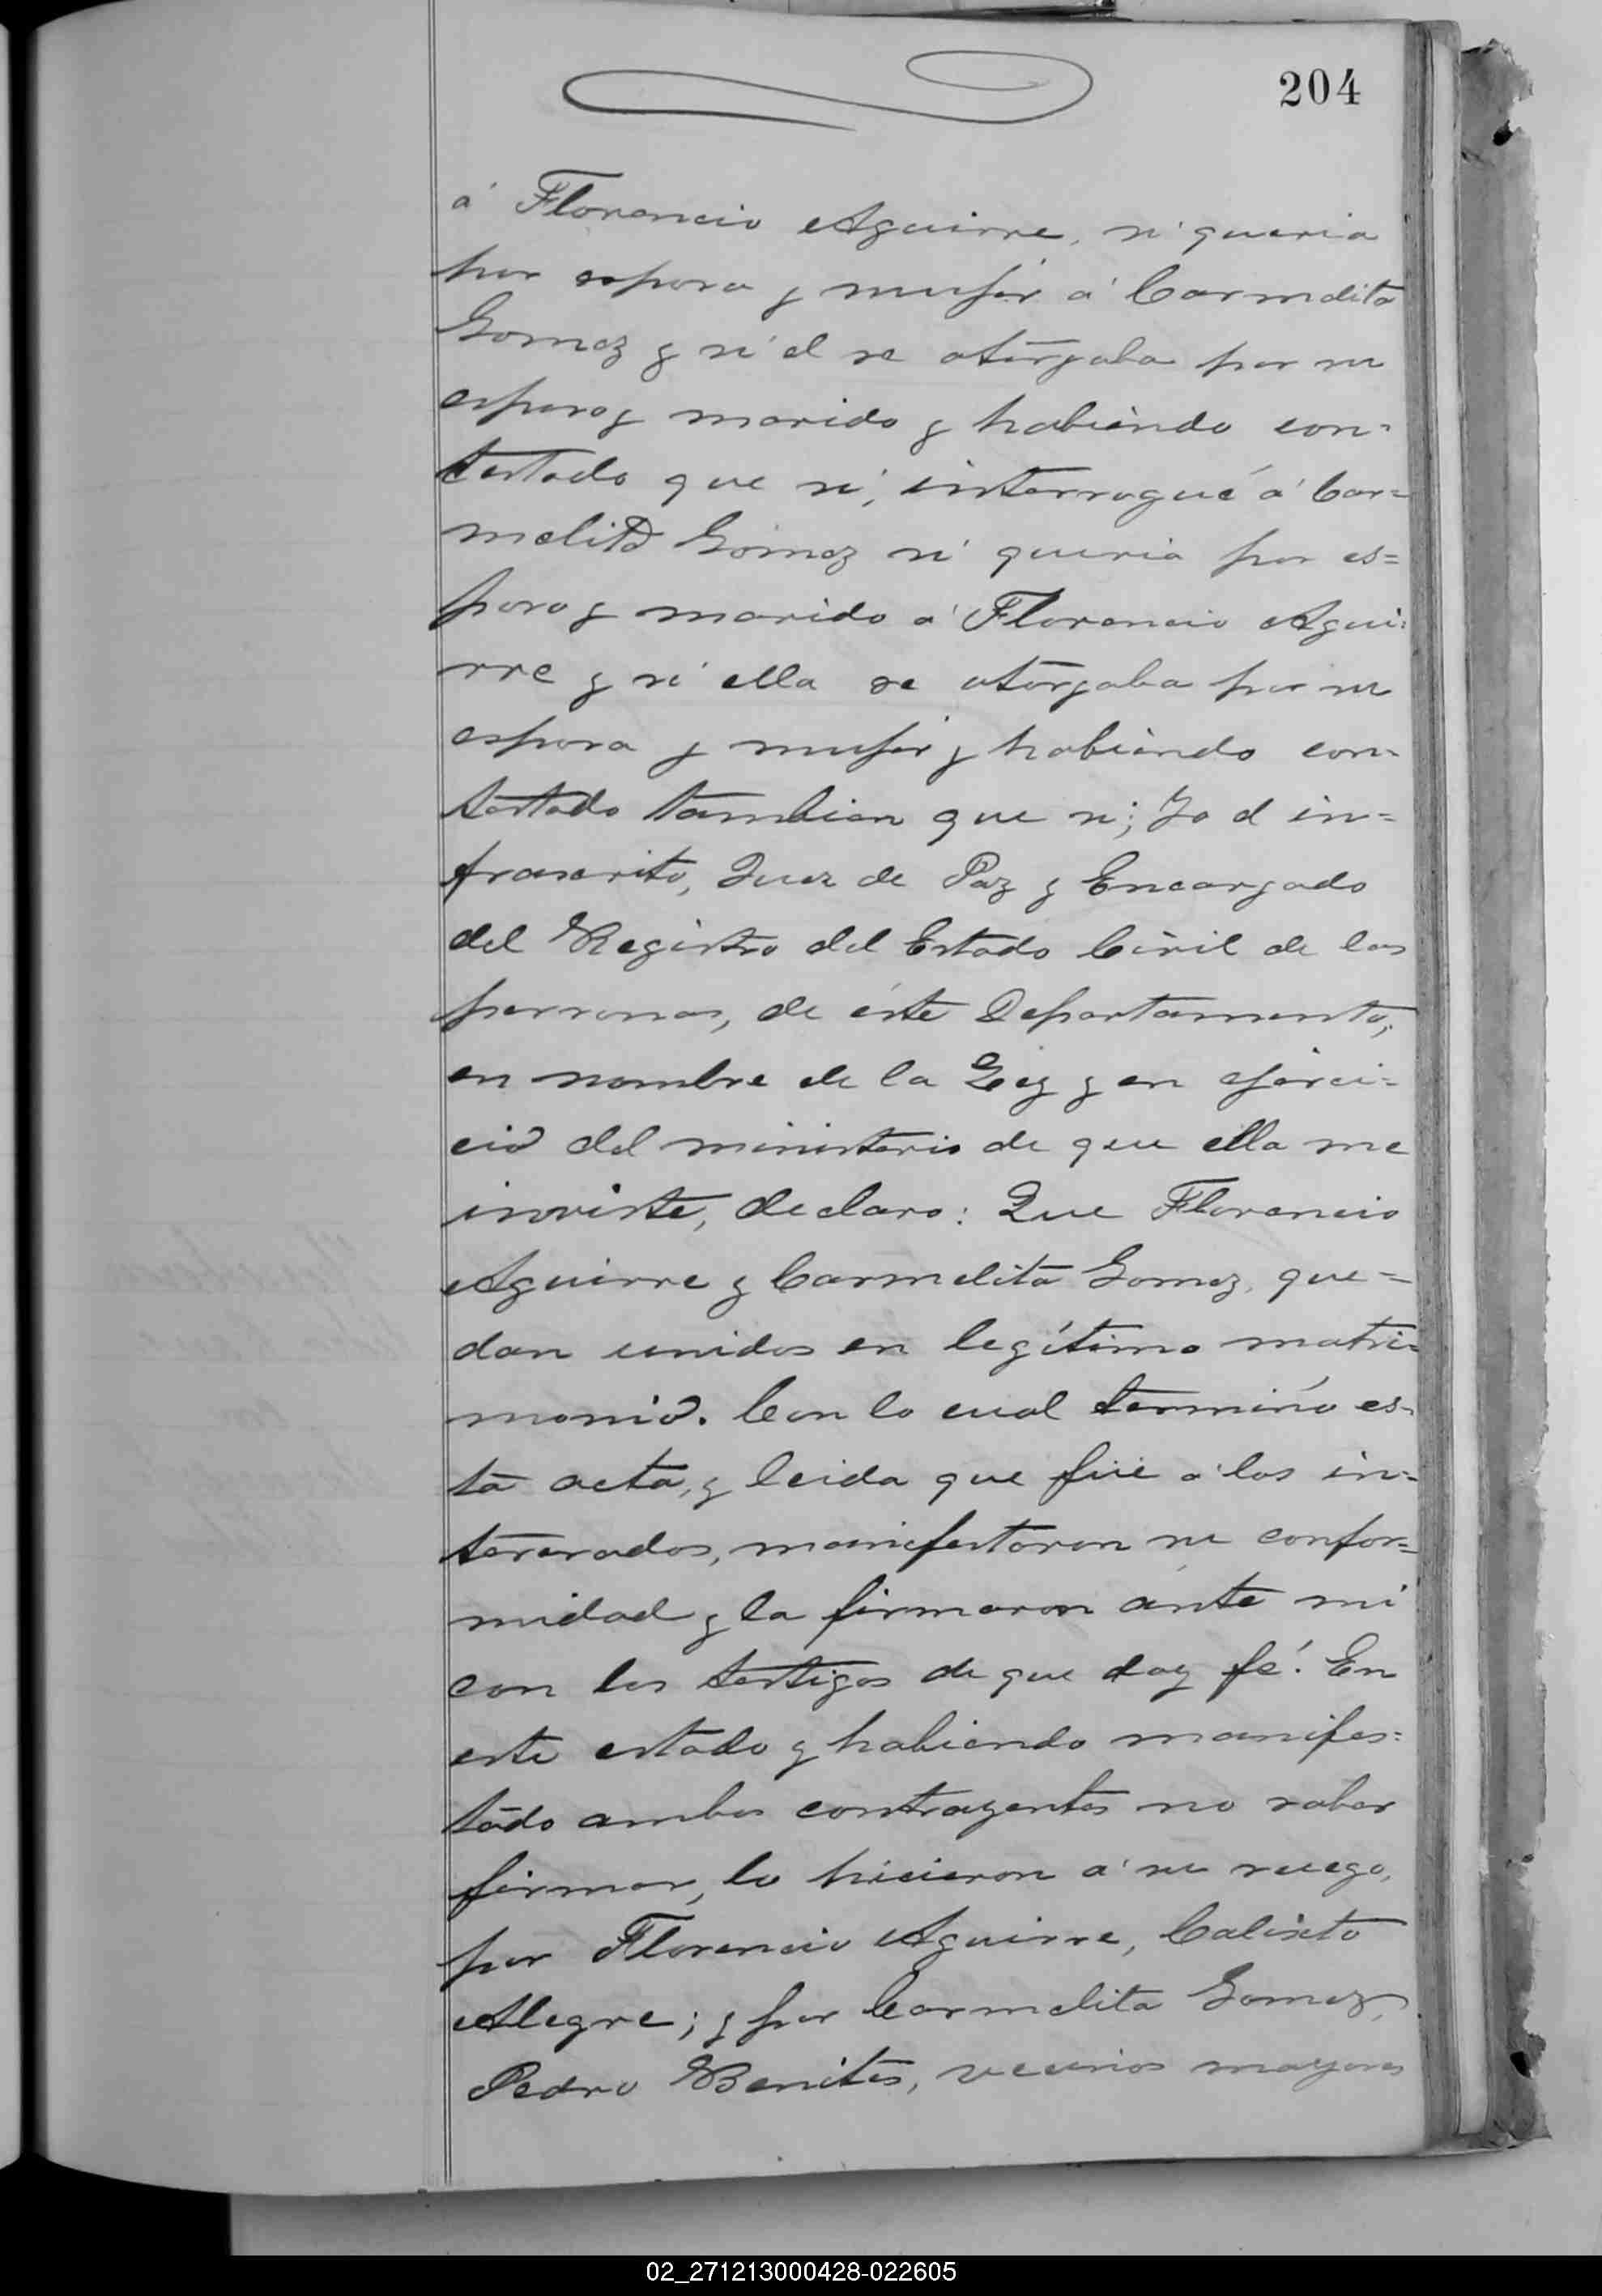 204
á Florencio Aguirre, si queria
por esposa y mujér á Carmelita
Gomez y si él se otorgaba por su
esposo y marido y habiéndo con-
testado que si; interrogué á Car=
melita Gómez si queria por es=
poso y marido á Florencio Agui-
rre y si ella se otorgaba por su
esposa y mujér y habiéndo con-
testado tambien que si; Yo el in=
frascrito, Juez de Paz y Encargado
del Registro del Estado Civil de las
personas, de éste Departamento,
en nombre de la Ley y en ejerci=
cio del ministerio de que ella me
inviste, declaro: Que Florencio
Aguirre y Carmelita Gomez, que=
dan unidos en legítimo matri=
monio. Con lo cual terminó es-
ta acta, y leida que fué á los in=
teresados, manifestaron su confor=
midad y la firmaron ante mi
con los testigos de que doy fé. En
este estado y habiendo manifes=
tado ambos contrayentes no saber
firmar, lo hicieron á su ruego,
por Florencio Aguirre, Calisto
Alegre; y por Carmelita Gomez,
Pedro Benites, vecinos mayores
02_271213000428-022605